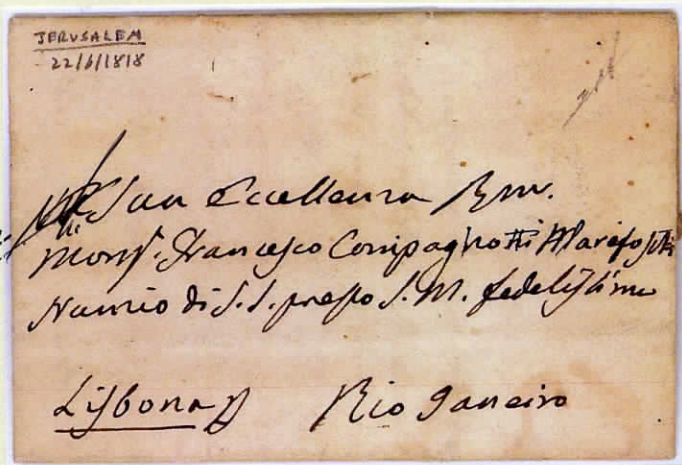 JERUSALEM
22/6/1818
Sua Eccellenza Rm.
Monsr. Francesco Compagnotti Marefoschi
Nunzio di S. S. presso S. M. fedelissima
Lisbona p Rio Janeiro